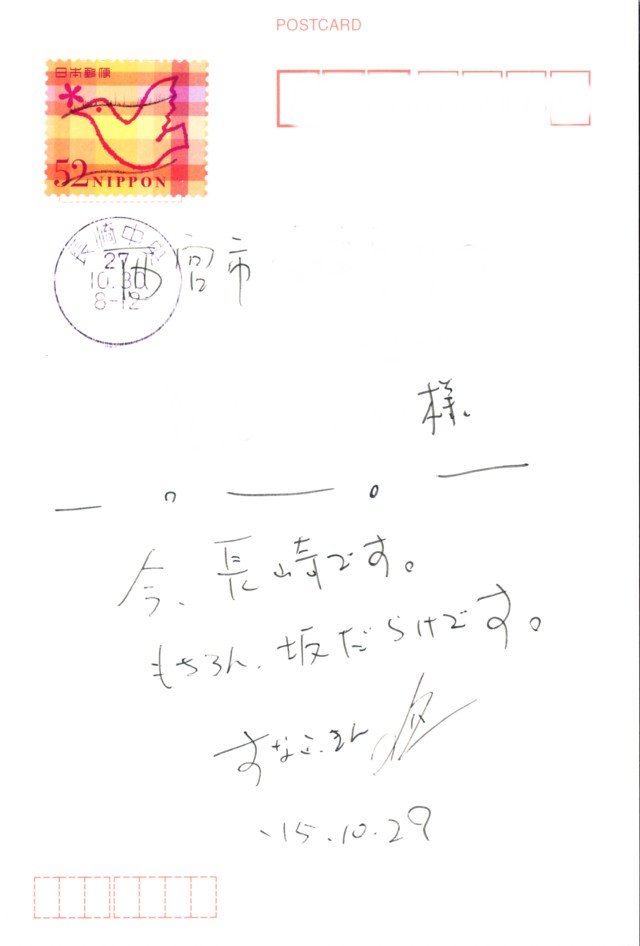 POSTCARD
日本郵便
52 NIPPON
長崎中央
27
10.30
8-12
西宮市
様
今、長崎です。
もちろん、坂だらけです。
'15.10.29